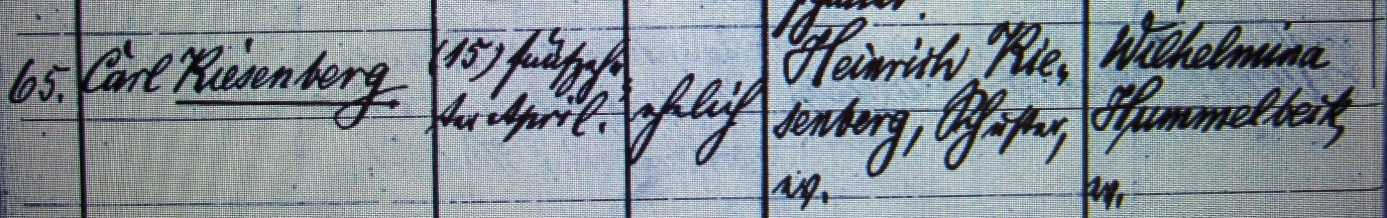 65.
Carl Riesenberg.
(15) fünfzehn-
ter April.
ehelich
Heinrich Rie-
senberg, Schuster,
Wilhelmina
Hummelbeck,